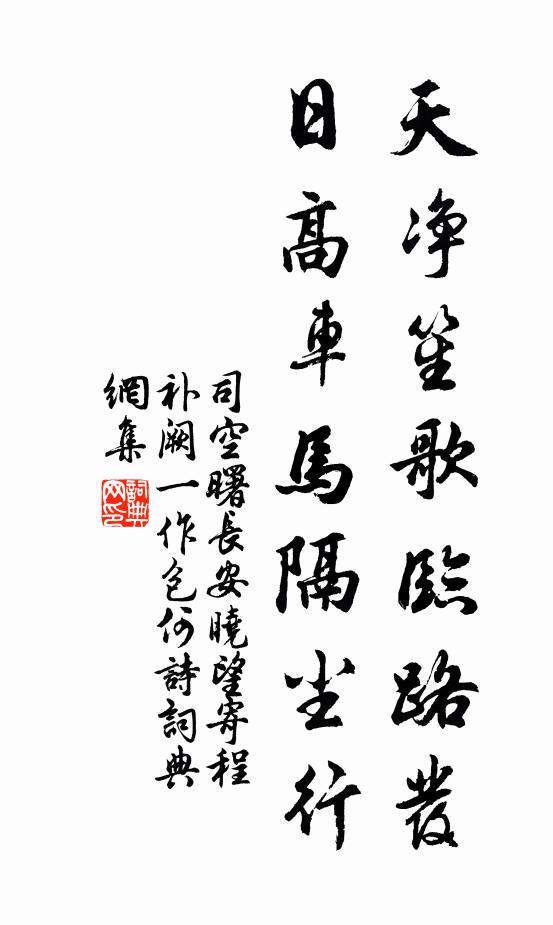 天净笙歌臨路發
日高車馬隔尘行
司空曙長安曉望寄程
补阙一作包何詩詞典
網集
詞典
网印